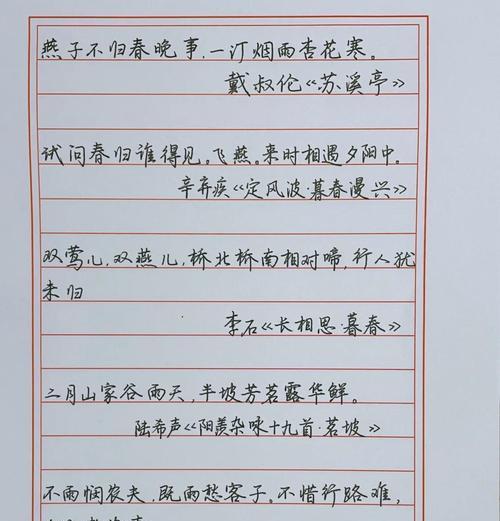 燕子不归春晚事，一汀烟雨杏花寒。
戴叔伦《苏溪亭》
试问春归谁得见。飞燕。来时相遇夕阳中。
辛弃疾《定风波·暮春漫兴》
双莺儿，双燕儿，桥北桥南相对啼，行人犹
未归
李石《长相思·暮春》
二月山家谷雨天，半坡芳茗露华鲜。
陆希声《阳羡杂咏十九首·茗坡》
不雨悯农夫，既雨愁客子。不惜行路难，